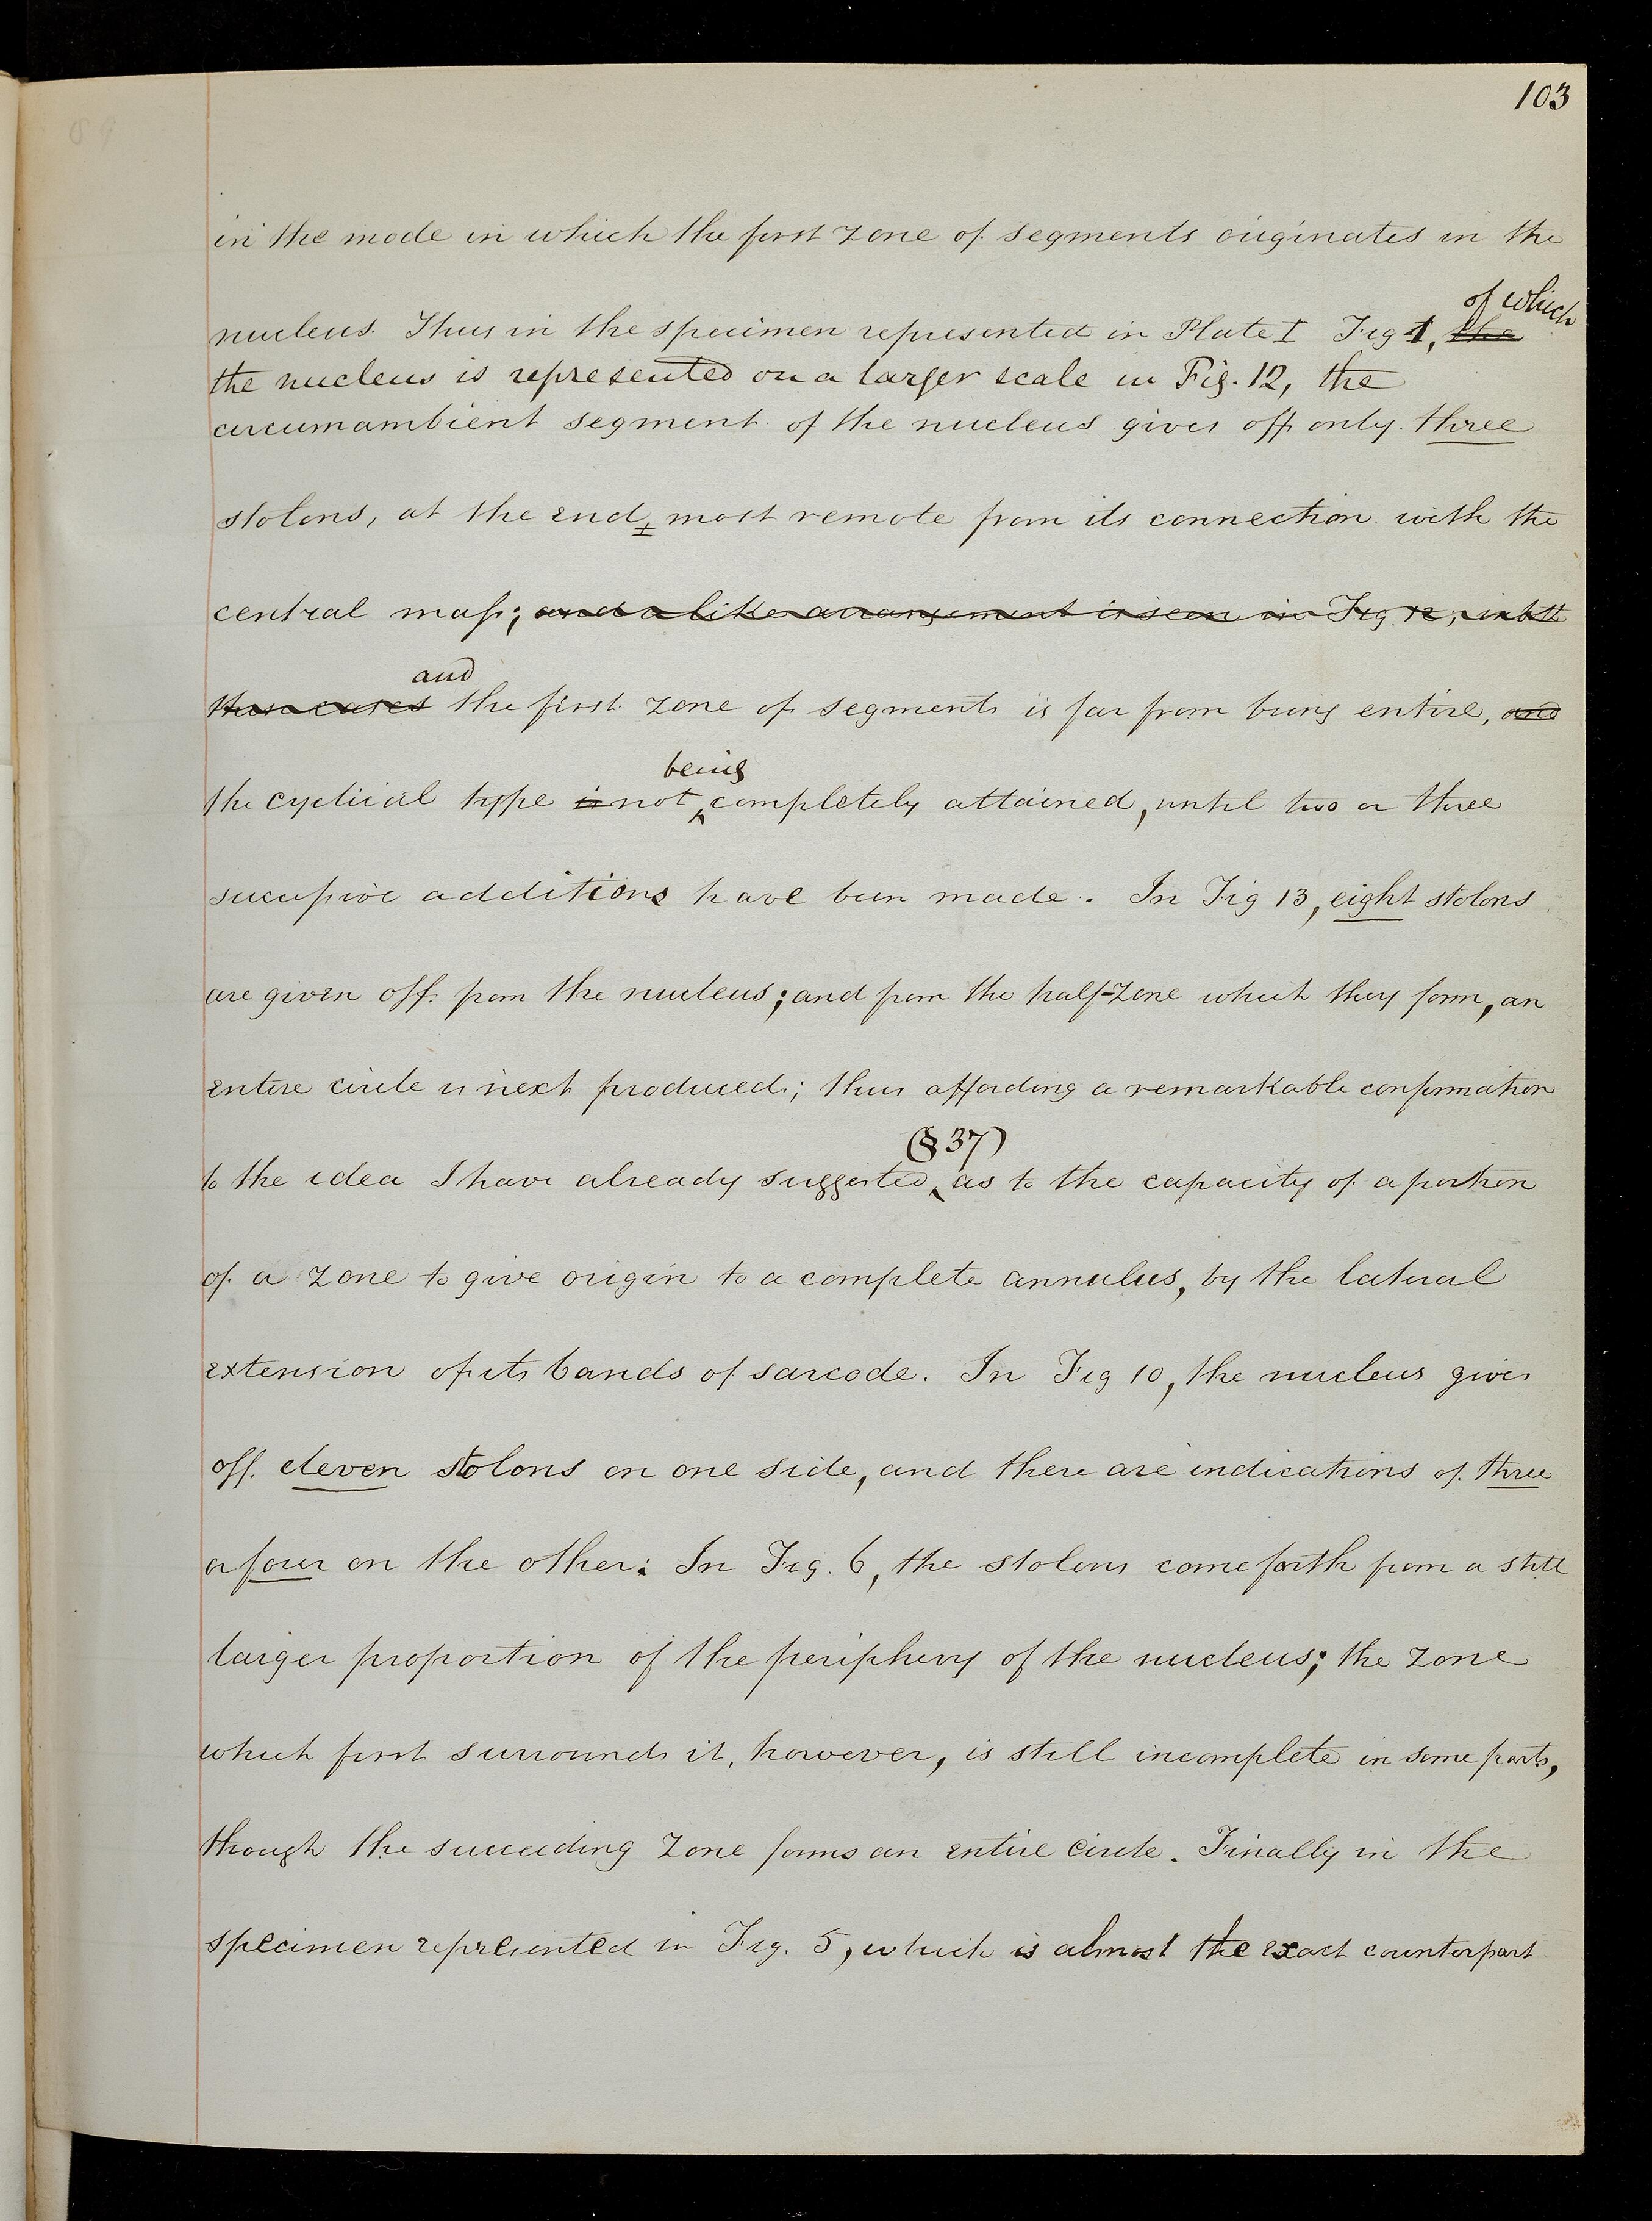 103
in the mode in which the first zone of segments originates in the
of which
nucleus. Thus in the specimen represented in Plate I Fig 1, the
the nucleus is represented on a larger scale in Fig. 12, the
circumambient segment of the nucleus gives off only three
stolons, at the end, most remote from its connection with the
central maſs; and a like arrangement is seen in Fig. 12; in both
and
these cases the first zone of segments is far from being entire, and
being
the cyclical type is not completely attained, until two or three
succeſsive additions have been made. In Fig 13, eight stolons
are given off from the nucleus; and from the half-zone which they form, an
entire circle is next produced; thus affording a remarkable confirmation
(§ 37)
to the idea I have already suggested, as to the capacity of a portion
of a zone to give origin to a complete annulus, by the lateral
extension of its bands of sarcode. In Fig 10, the nucleus gives
off eleven stolons on one side, and there are indications of three
or four on the other: In Fig. 6, the stolons come forth from a still
larger proportion of the periphery of the nucleus; the zone
which first surrounds it, however, is still incomplete in some parts,
though the succeeding zone forms an entire circle. Finally in the
specimen represented in Fig. 5, which is almost the exact counterpart